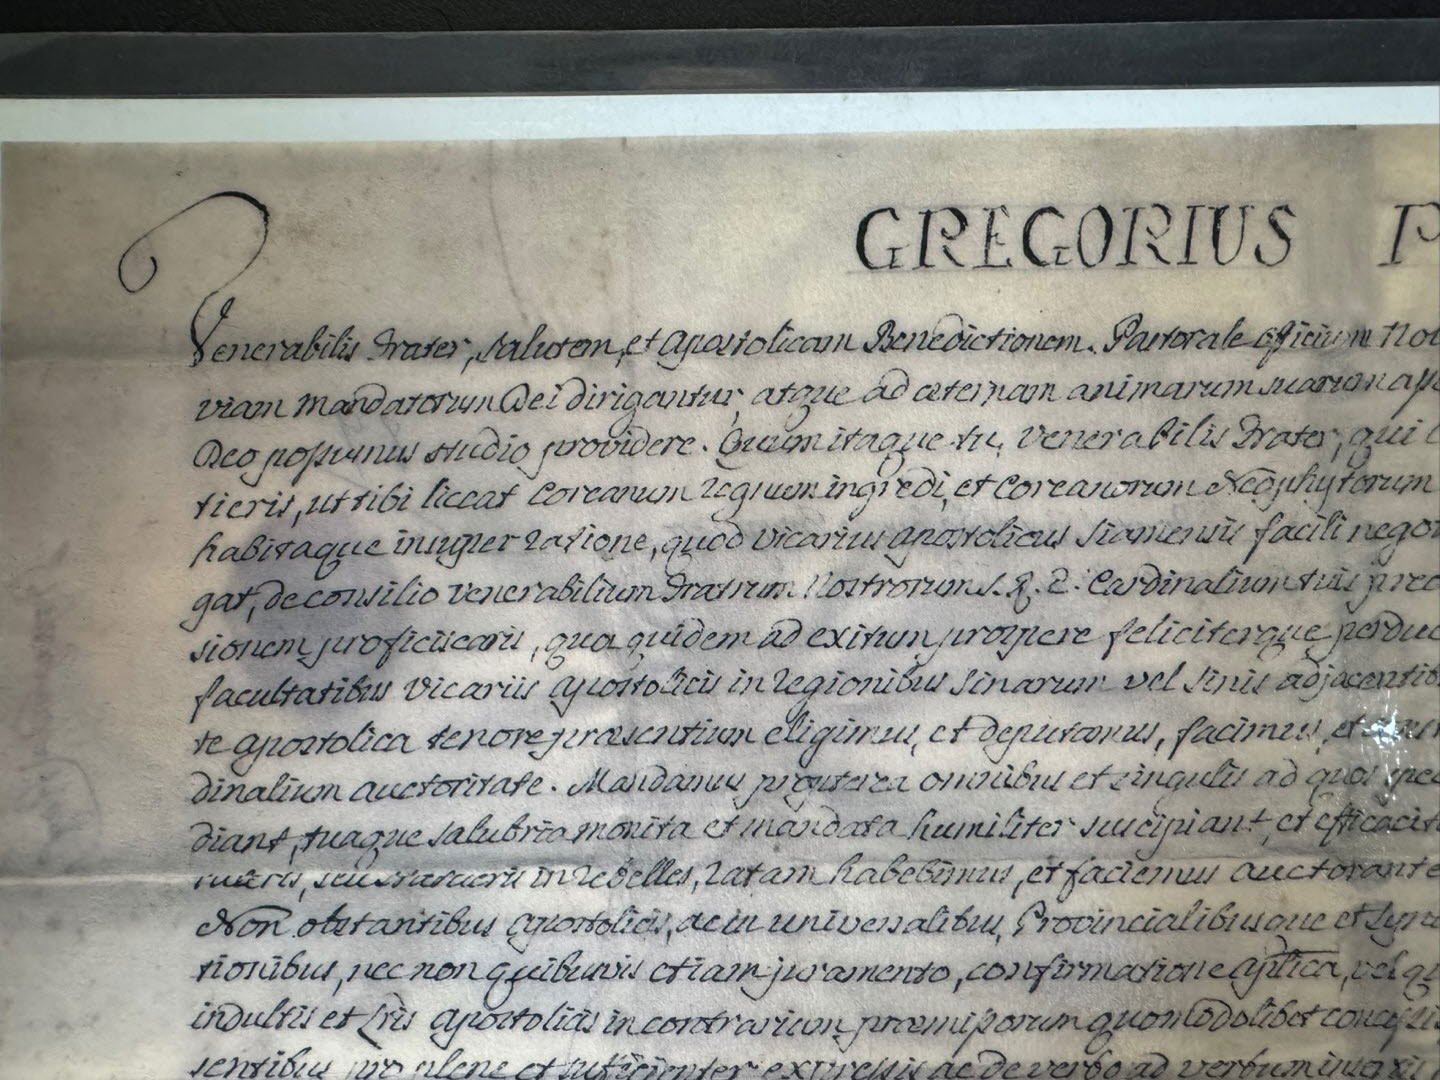 GREGORIUS P
Venerabilis Frater, salutem, et Apostolicam Benedictionem. Pastorale officium
viam mandatorum Dei dirigantur, atque ad æternam animarum suarum
Deo possumus studio providere. Quum itaque tu, Venerabilis Frater, qui
tieris, ut tibi liceat Coreanum regnum ingredi, et Coreanorum Neophytorum
habitaque insuper ratione, quod Vicarius Apostolicus Siamensis facili
gat, de consilio Venerabilium Fratrum Nostrorum S. R. E. Cardinalium tuis
sionem proficiscaris, qua quidem ad exitum prospere feliciterque
facultatibus Vicariis Apostolicis in regionibus Sinarum vel Sinis
te apostolica tenore præsentium eligimus, et deputamus, facimus, et
dinalium auctoritate. Mandamus propterea omnibus et singulis ad quos
diant, tuaque salubria monita et mandata humiliter suscipiant, et
seu statueris in rebelles, ratam habebimus, et faciemus auctorante
Non obstantibus Apostolicis, ac in universalibus, Provincialibusque et
tionibus, nec non quibusvis etiam juramento, confirmatione aplica, vel
indultis et Lris Apostolicis in contrarium præmissorum quomodolibet
sentibus pro plene et sufficienter expressis ac de verbo ad verbum